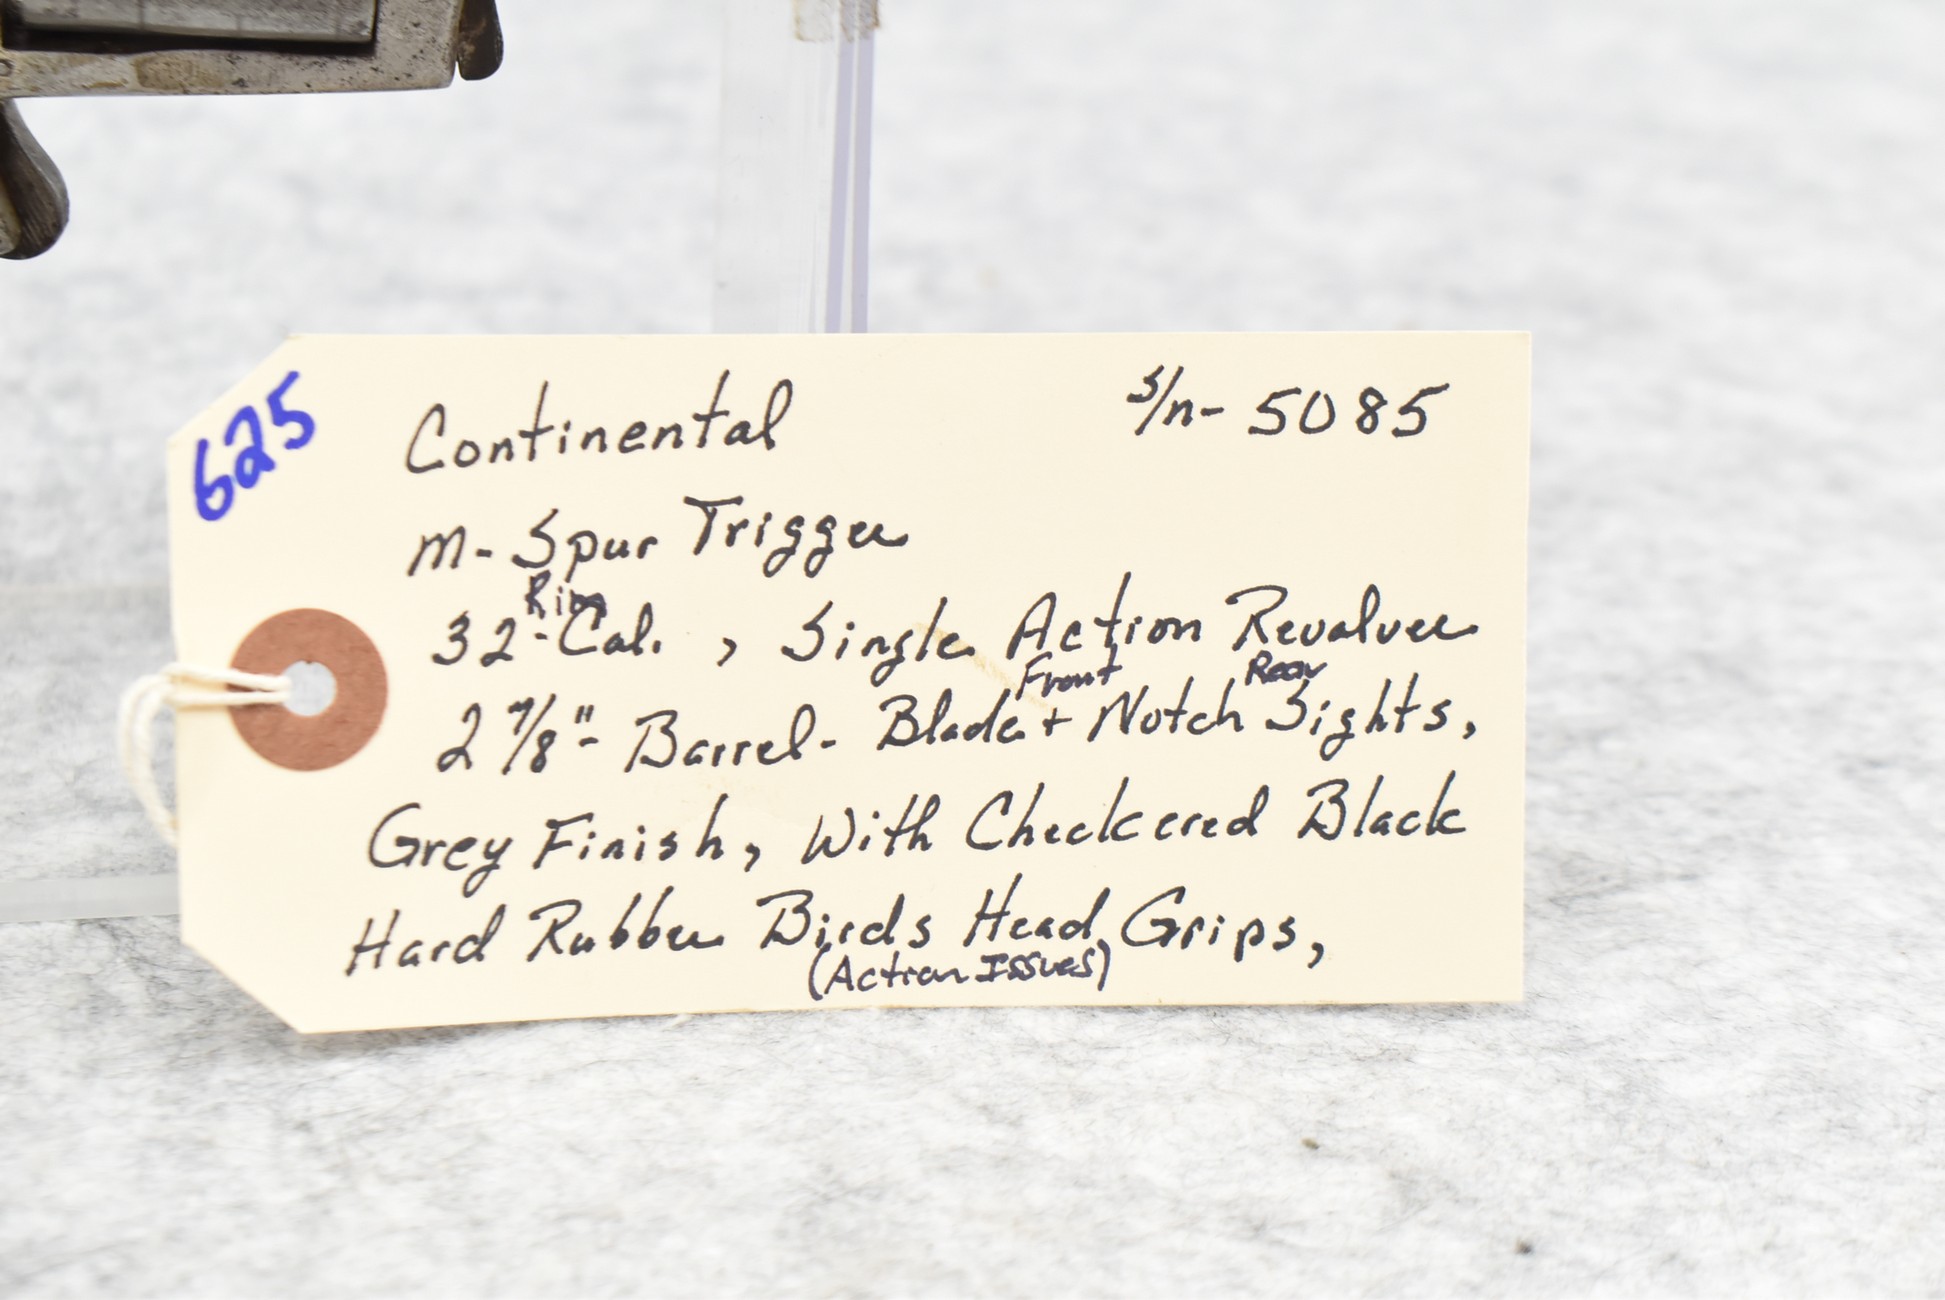 625
Continental s/n- 5085
M- Spur Trigger
Rim
32-Cal. , Single Action Revolver
Front Rear
2 7/8"- Barrel- Blade + Notch Sights,
Grey Finish, With Checkered Black
Hard Rubber Birds Head Grips,
(Action Issues)